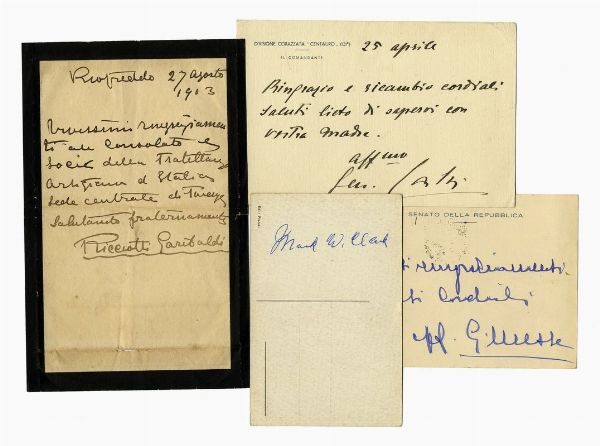 Riofreddo 27 agosto
1913
Vivissimi ringraziamen
ti al Consolato e
Socii della Fratellanza
Artigiana d'Italia
Sede centrale di Firenze
Salutando fraternamente
Ricciotti Garibaldi
DIVISIONE CORAZZATA "CENTAURO" (131ª)
IL COMANDANTE
25 aprile
Ringrazio e ricambio cordiali
saluti lieto di sapervi con
vostra madre.
aff mo
Gen.
Mark W. Clark
SENATO DELLA REPUBBLICA
ti ringraziamenti
ti cordiali
G. Messe